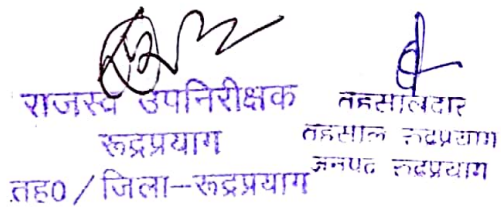 राजस्व उपनिरीक्षक
रूद्रप्रयाग
तह0 / जिला-रूद्रप्रयाग
तहसीलदार
तहसील रूद्रप्रयाग
जनपद रूद्रप्रयाग